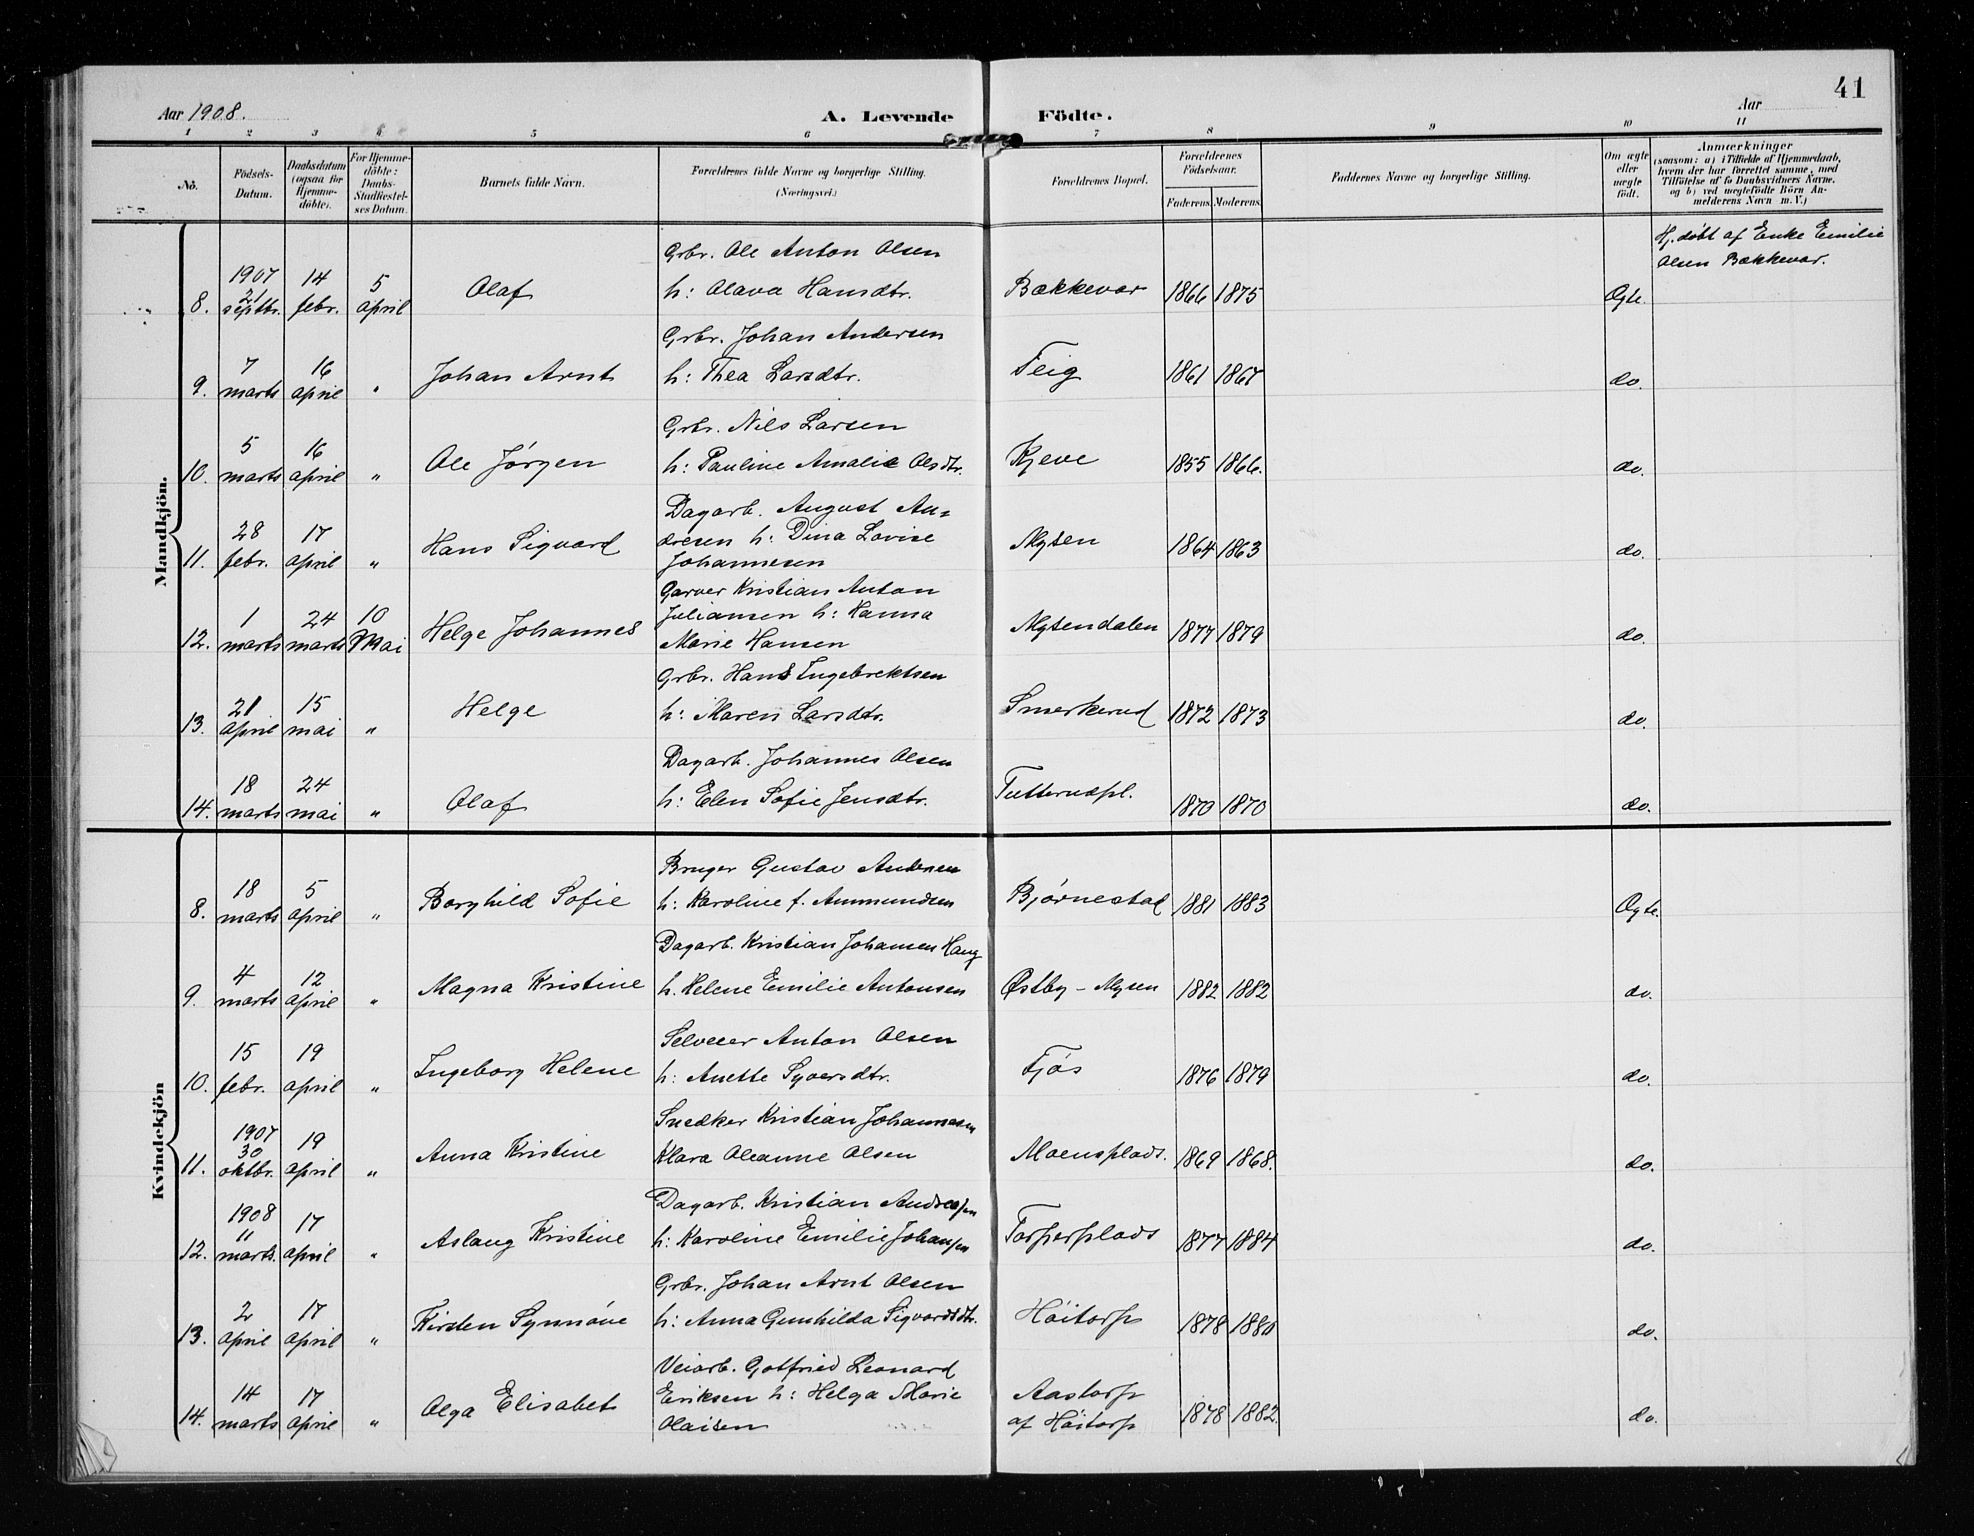 41
Aar 1908.
A. Levende Födte.
Aar
1 2 3 4 5 6 7 8 9 10 11
No.
Födsels-
Datum.
Daabsdatum
(ogsaa for
Hjemme-
döbte).
For Hjemme-
döbte:
Daabs-
Stadfæstel-
ses Datum.
Barnets fulde Navn.
Forældrenes fulde Navne og borgerlige Stilling.
(Næringsvei.)
Forældrenes Bopæl.
Forældrenes
Födselsaar.
Faderens. Moderens.
Faddernes Navne og borgerlige Stilling.
Om ægte
eller
uægte
födt.
Anmærkninger
(saasom: a) i Tilfælde af Hjemmedaab,
hvem der har forrettet samme, med
Tilföielse af to Daabsvidners Navne.
og b) ved uegtefödte Börn An-
melderens Navn m. V.)
Mandkjön.
Hj. døbt af Enke Emilie
Olsen Bækkevar.
Grbr. Ole Anton Olsen
1907
21 14 5
8. septbr. febr. april Olaf h: Olava Hansdtr. Bækkevar 1866 1875 Ægte.
Grbr. Johan Andersen
7 16
9. marts april " Johan Arnt h: Thea Larsdtr. Teig 1861 1867 do.
Grbr. Nils Larsen
5 16
10. marts april " Ole Jørgen h: Pauline Amalie Olsdtr. Kjeve 1855 1866. do.
Dagarb. August An-
28 17
11. febr. april " Hans Sigvard dresen h: Dina Lovise Mysen 1864 1863 do.
Johannesen
Garver Kristian Anton
1 24 10
12. marts marts Mai Helge Johannes Juliansen h: Hanna Mysendalen 1877 1879 do.
Marie Hansen
Grbr. Hans Ingebrektsen
21 15
13. april mai " Helge h: Maren Larsdtr. Smerkerud 1872 1873 do.
Dagarb. Johannes Olsen
18 24
14. marts mai " Olaf h: Elen Sofie Jensdtr. Tutterudpl. 1870 1870 do.
Kvindekjön
Bruger Gustav Andersen
18 5
8. marts april " Borghild Sofie h: Karoline f. Ammundsen Bjørnestad 1881 1883 Ægte.
Dagarb. Kristian Johansen Haug
4 12
9. marts april " Magna Kristine h. Helene Emilie Antonsen Østby - Mysen 1882 1882 do.
Selveier Anton Olsen
15 19
10. febr. april " Ingeborg Helene h: Anette Syversdtr. Fjøs 1876 1879 do.
Snedker Kristian Johannesen
1907
30 19
11. oktbr. april " Anna Kristine Klara Oleanne Olsen Moensplads. 1869 1868. do.
Dagarb. Kristian Andresen
1908
11 17
12. marts. april " Aslaug Kristine h: Karoline Emilie Johansen Torperplads 1877 1884 do.
Grbr. Johan Arnt Olsen
2 17
13. april april " Kirsten Synnøve h: Anna Gunhilda Sigvardsdtr. Høitorp 1878 1880 do.
Veiarb. Gotfried Leonard
14 17
14. marts april " Olga Elisabet Eriksen h: Helga Marie Aastorp 1878 1882. do.
Olaisen af Høitorp